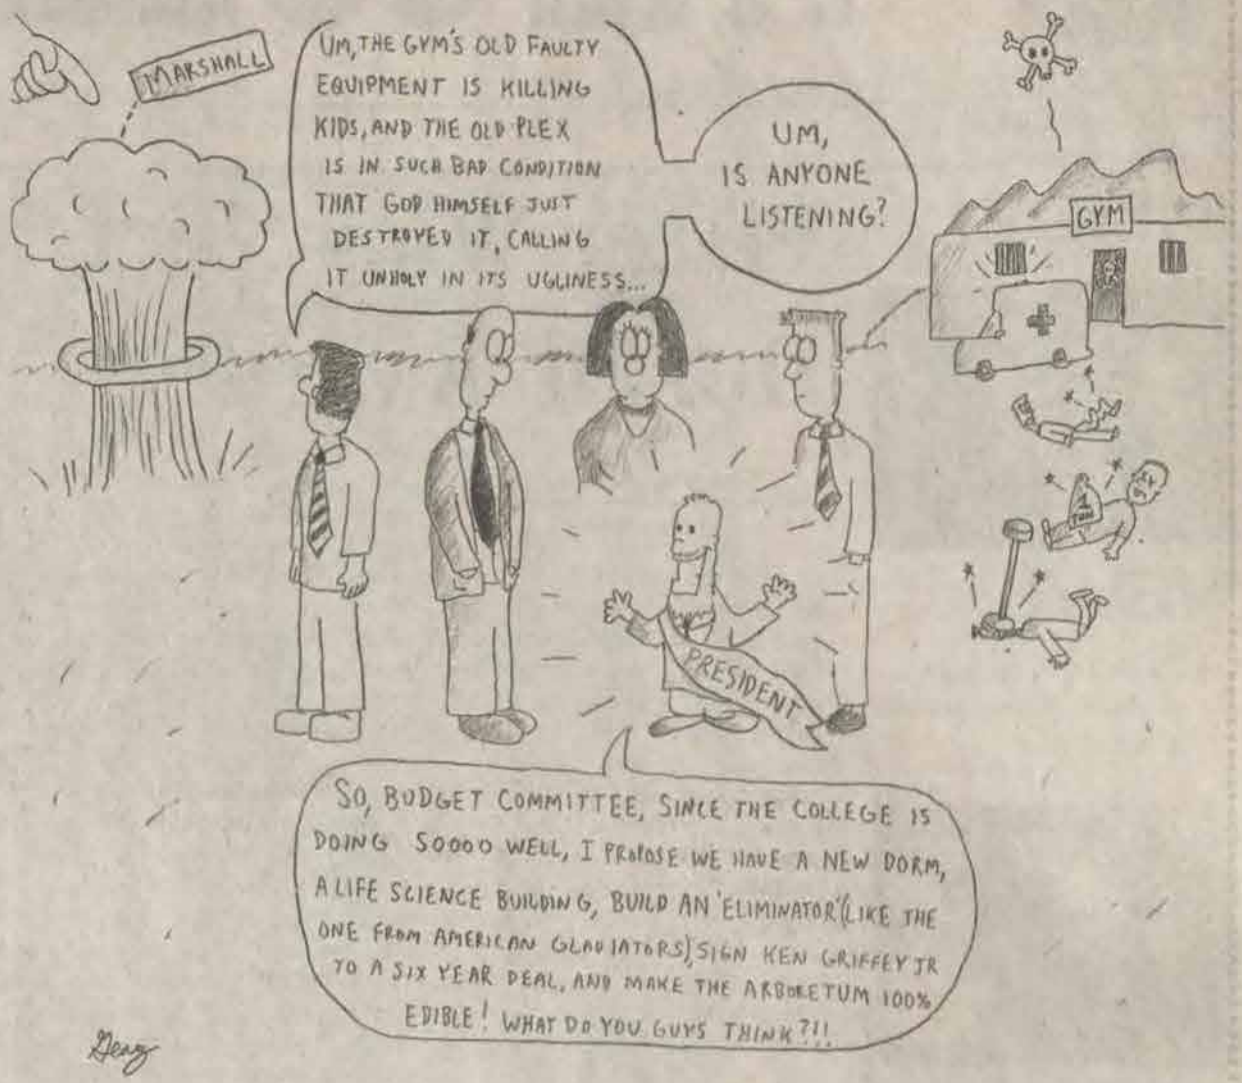 MARSHALL
UM, THE GYM'S OLD FAULTY
EQUIPMENT IS KILLING
KIDS, AND THE OLD PLEX
IS IN SUCH BAD CONDITION
THAT GOD HIMSELF JUST
DESTROYED IT, CALLING
IT UNHOLY IN ITS UGLINESS...
UM,
IS ANYONE
LISTENING?
GYM
1
TON
PRESIDENT
SO, BUDGET COMMITTEE, SINCE THE COLLEGE IS
DOING SOOOO WELL, I PROPOSE WE HAVE A NEW DORM,
A LIFE SCIENCE BUILDING, BUILD AN 'ELIMINATOR' (LIKE THE
ONE FROM AMERICAN GLADIATORS), SIGN KEN GRIFFEY JR
TO A SIX YEAR DEAL, AND MAKE THE ARBORETUM 100%
EDIBLE! WHAT DO YOU GUYS THINK?!!